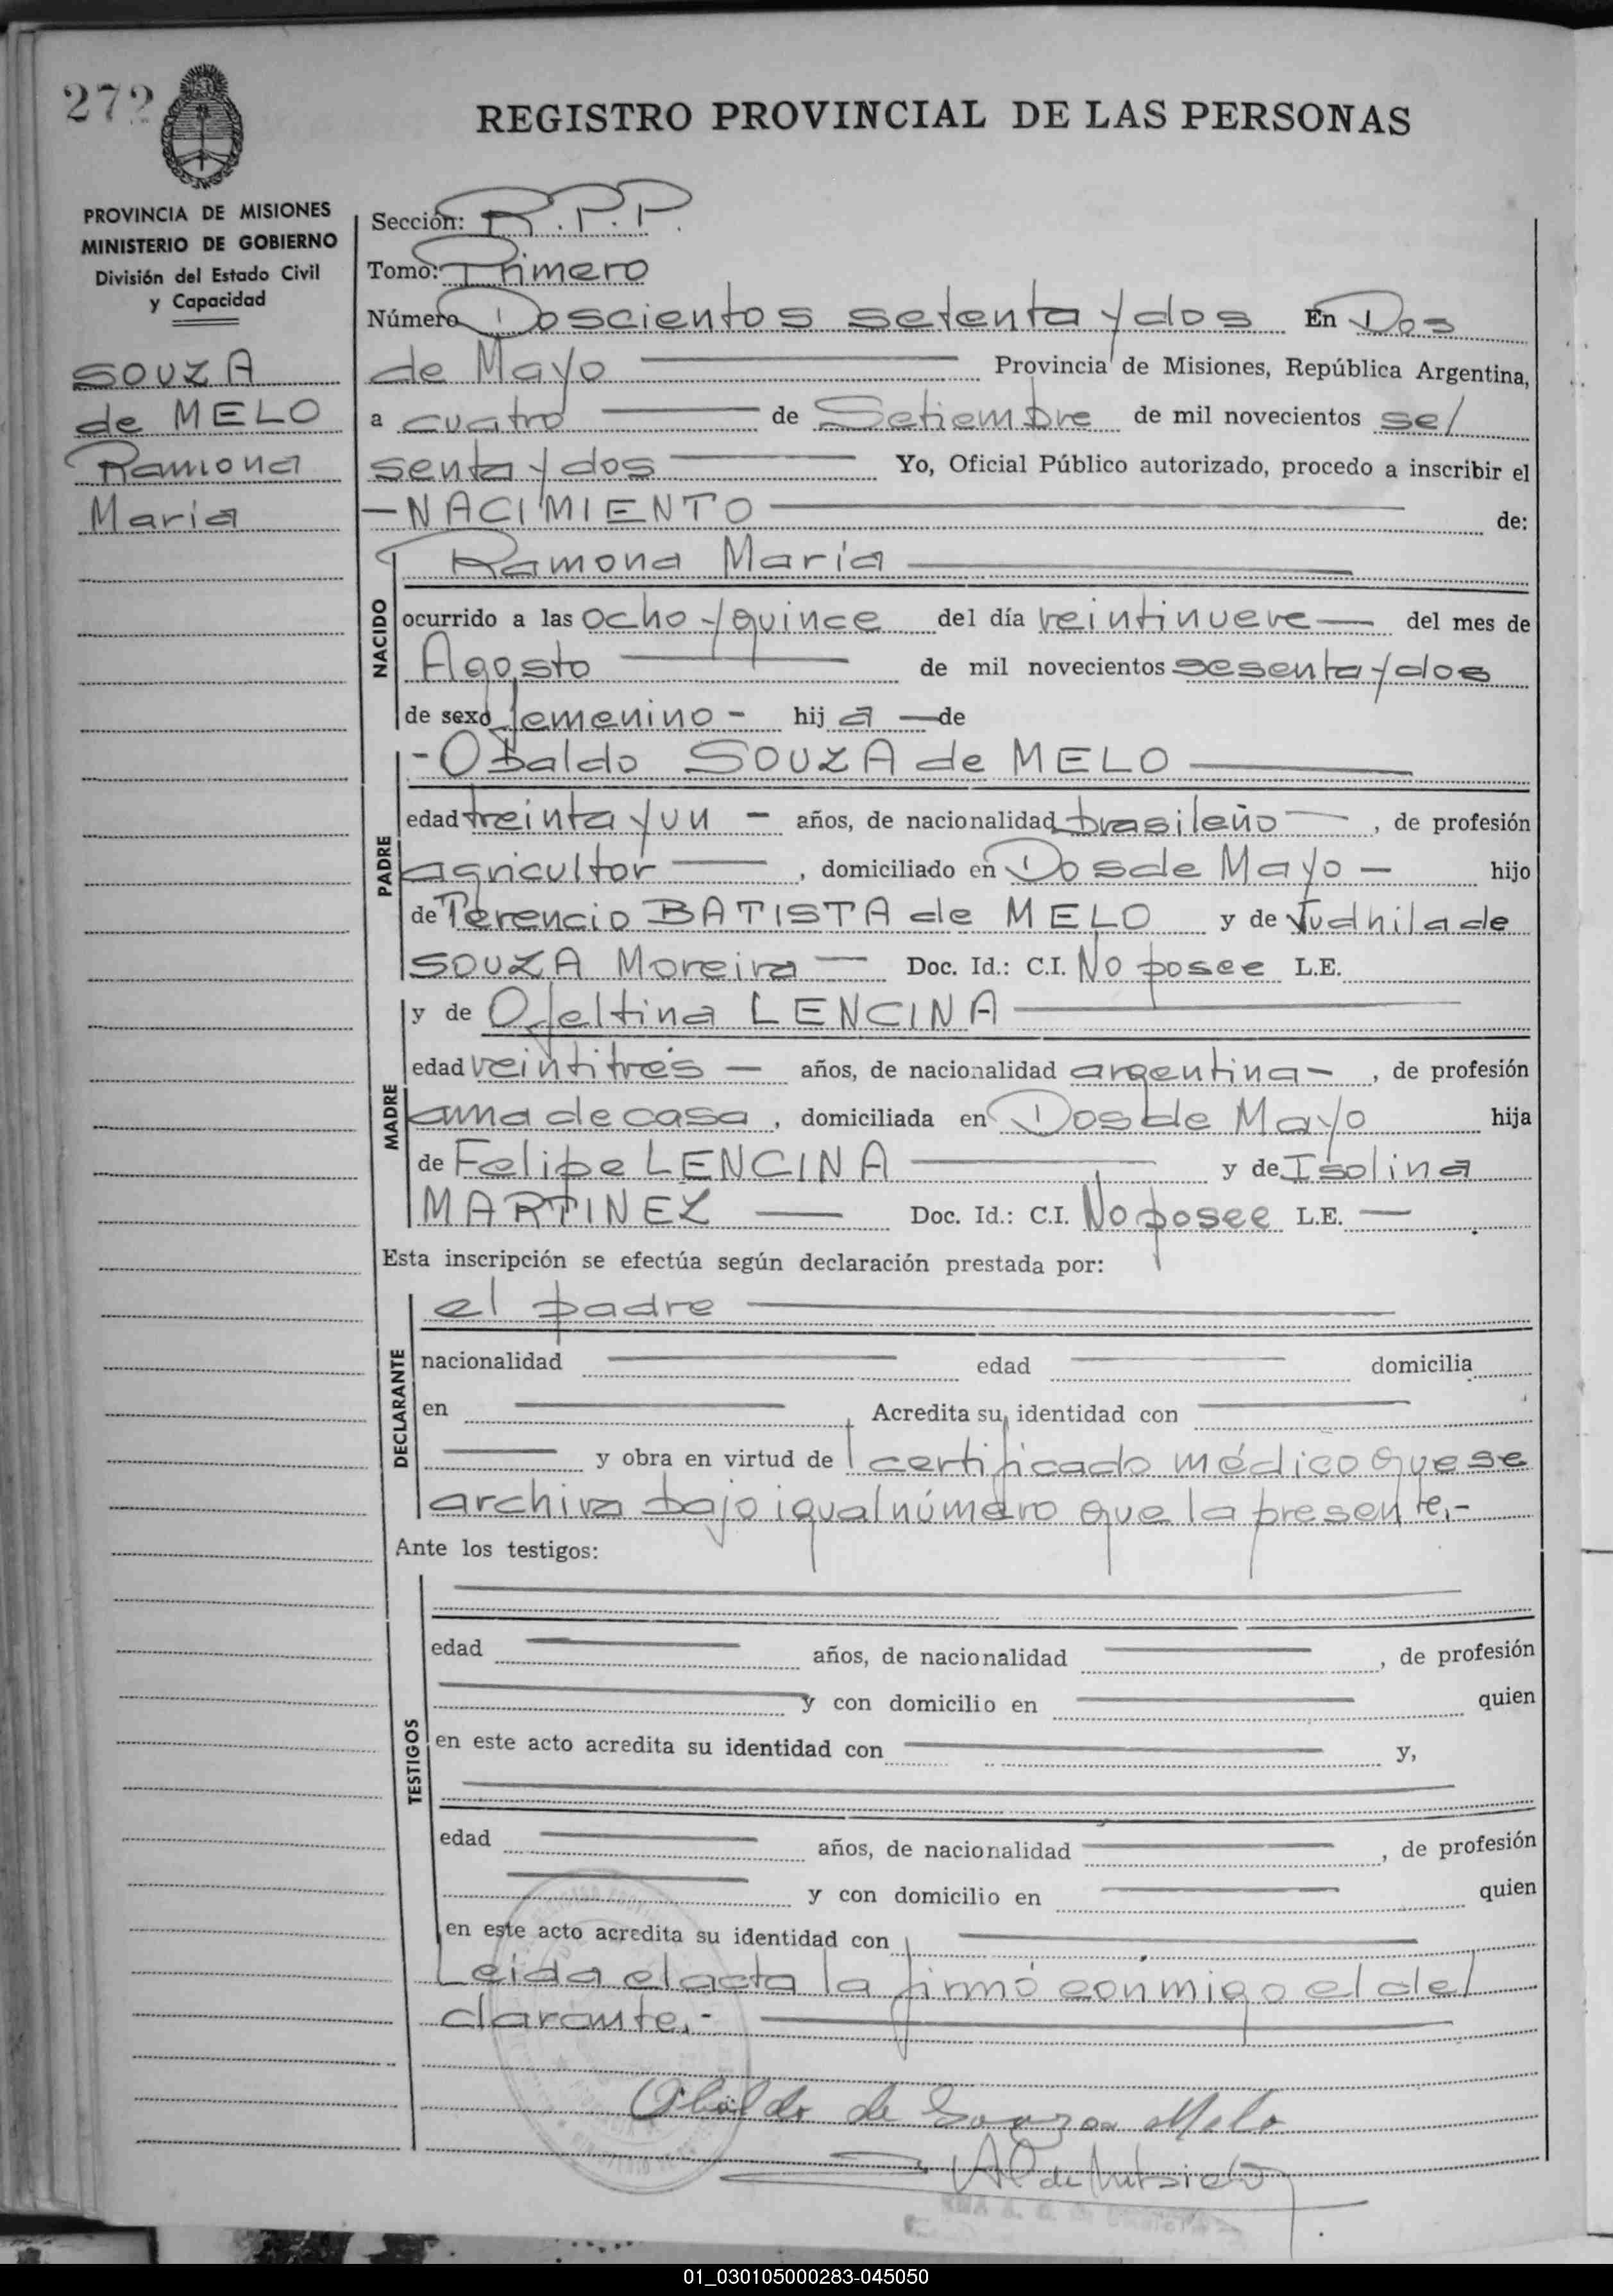 272
REGISTRO PROVINCIAL DE LAS PERSONAS
PROVINCIA DE MISIONES
MINISTERIO DE GOBIERNO
División del Estado Civil
y Capacidad
SOUZA
de MELO
Ramona
Maria
Sección: R.P.P.
Tomo: Primero
Número Doscientos setenta y dos En Dos
de Mayo Provincia de Misiones, República Argentina,
a cuatro de Setiembre de mil novecientos se/
senta y dos Yo, Oficial Público autorizado, procedo a inscribir el
-NACIMIENTO de:
NACIDO
Ramona María
ocurrido a las ocho y quince del día veintinueve del mes de
Agosto de mil novecientos sesenta y dos
de sexo femenino - hij a - de
PADRE
-Obaldo SOUZA de MELO
edad treinta y un - años, de nacionalidad brasileño, de profesión
agricultor, domiciliado en Dos de Mayo - hijo
de Terencio BATISTA de MELO y de Judhila de
SOUZA Moreira Doc. Id.: C.I. No posee L.E.
MADRE
y de Ofeltina LENCINA
edad veintitrés - años, de nacionalidad argentina -, de profesión
ama de casa, domiciliada en Dos de Mayo hija
de Felipe LENCINA y de Isolina
MARTINEZ Doc. Id.: C.I. No posee L.E. -
Esta inscripción se efectúa según declaración prestada por:
DECLARANTE
el padre
nacionalidad edad domicilia
en Acredita su identidad con
y obra en virtud de l certificado médico que se
archiva bajo igual número que la presente.-
Ante los testigos:
TESTIGOS
edad años, de nacionalidad, de profesión
y con domicilio en quien
en este acto acredita su identidad con y,
edad años, de nacionalidad, de profesión
y con domicilio en quien
en este acto acredita su identidad con
Leida el acta la firmó conmigo el de/
clarante.-
Obaldo de Souza Melo
01_030105000283-045050